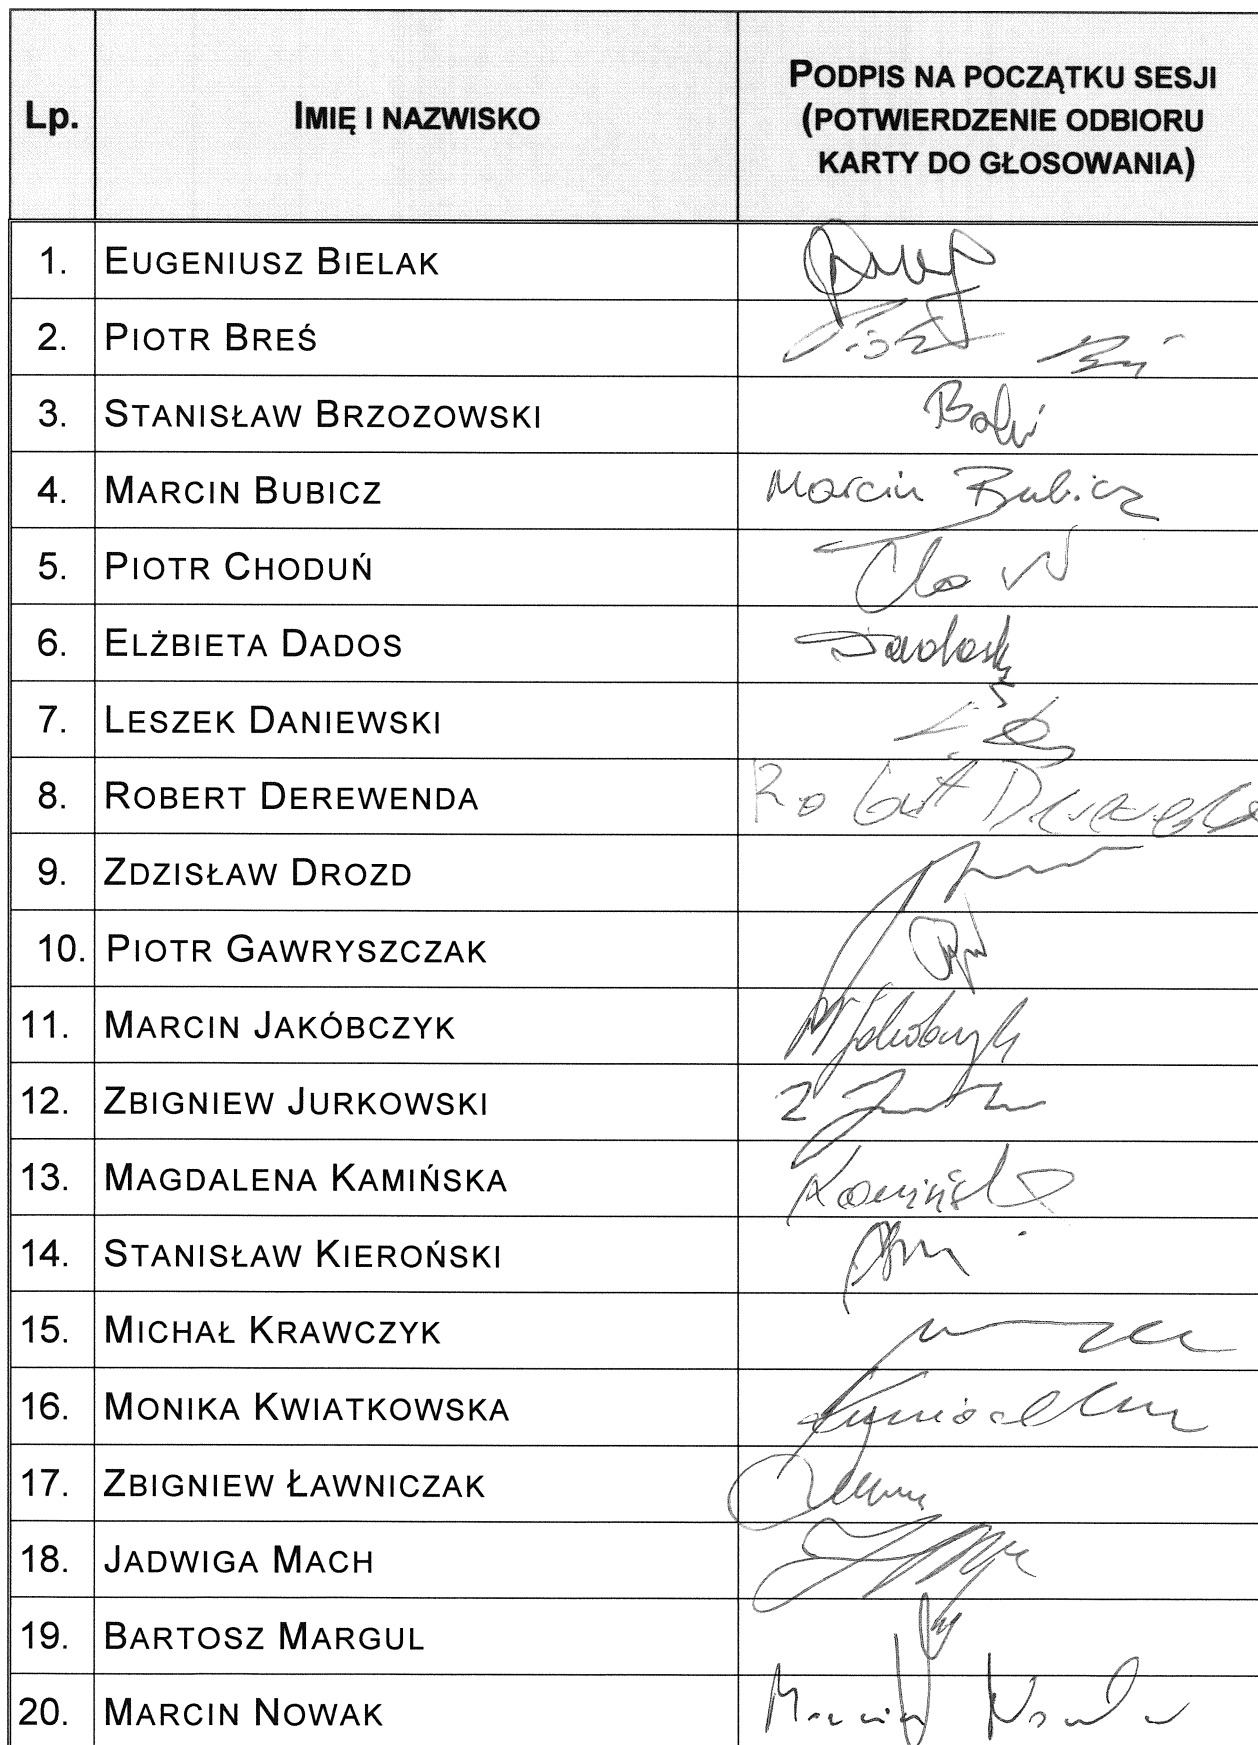 Lp.
IMIĘ I NAZWISKO
PODPIS NA POCZĄTKU SESJI
(POTWIERDZENIE ODBIORU
KARTY DO GŁOSOWANIA)
1. EUGENIUSZ BIELAK
2. PIOTR BREŚ Piotr Breś
3. STANISŁAW BRZOZOWSKI
4. MARCIN BUBICZ Marcin Bubicz
5. PIOTR CHODUŃ
6. ELŻBIETA DADOS
7. LESZEK DANIEWSKI
8. ROBERT DEREWENDA Robert Derewenda
9. ZDZISŁAW DROZD
10. PIOTR GAWRYSZCZAK
11. MARCIN JAKÓBCZYK MJakóbczyk
12. ZBIGNIEW JURKOWSKI
13. MAGDALENA KAMIŃSKA Kamińska
14. STANISŁAW KIEROŃSKI
15. MICHAŁ KRAWCZYK
16. MONIKA KWIATKOWSKA
17. ZBIGNIEW ŁAWNICZAK
18. JADWIGA MACH
19. BARTOSZ MARGUL
20. MARCIN NOWAK Marcin Nowak